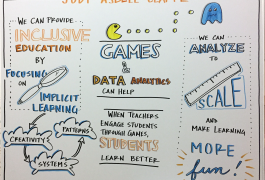 WE CAN PROVIDE
INCLUSIVE
EDUCATION
BY
FOCUSING
ON
IMPLICIT
LEARNING
CREATIVITY
PATTERNS
SYSTEMS
GAMES
&
DATA ANALYTICS
CAN HELP
WHEN TEACHERS
ENGAGE STUDENTS
THROUGH GAMES,
STUDENTS
LEARN BETTER
WE CAN
ANALYZE
TO
SCALE
AND
MAKE LEARNING
MORE
fun!